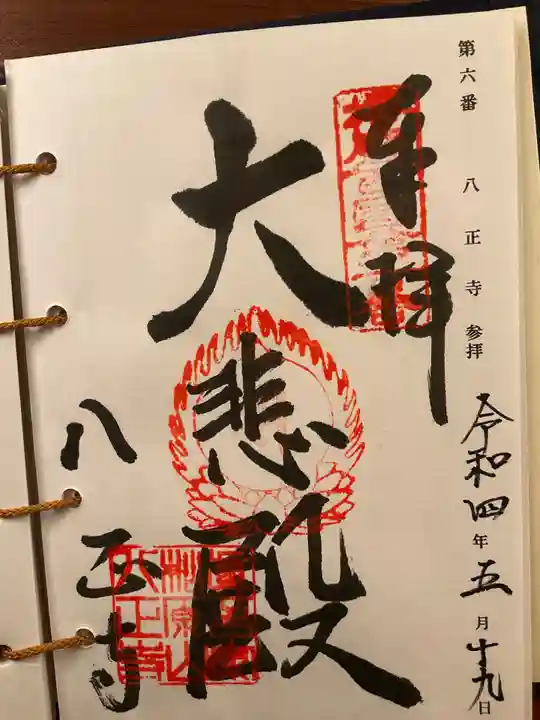 第六番 八正寺 参拝
令和四年五月十九日
奉拝
大悲殿
八正寺